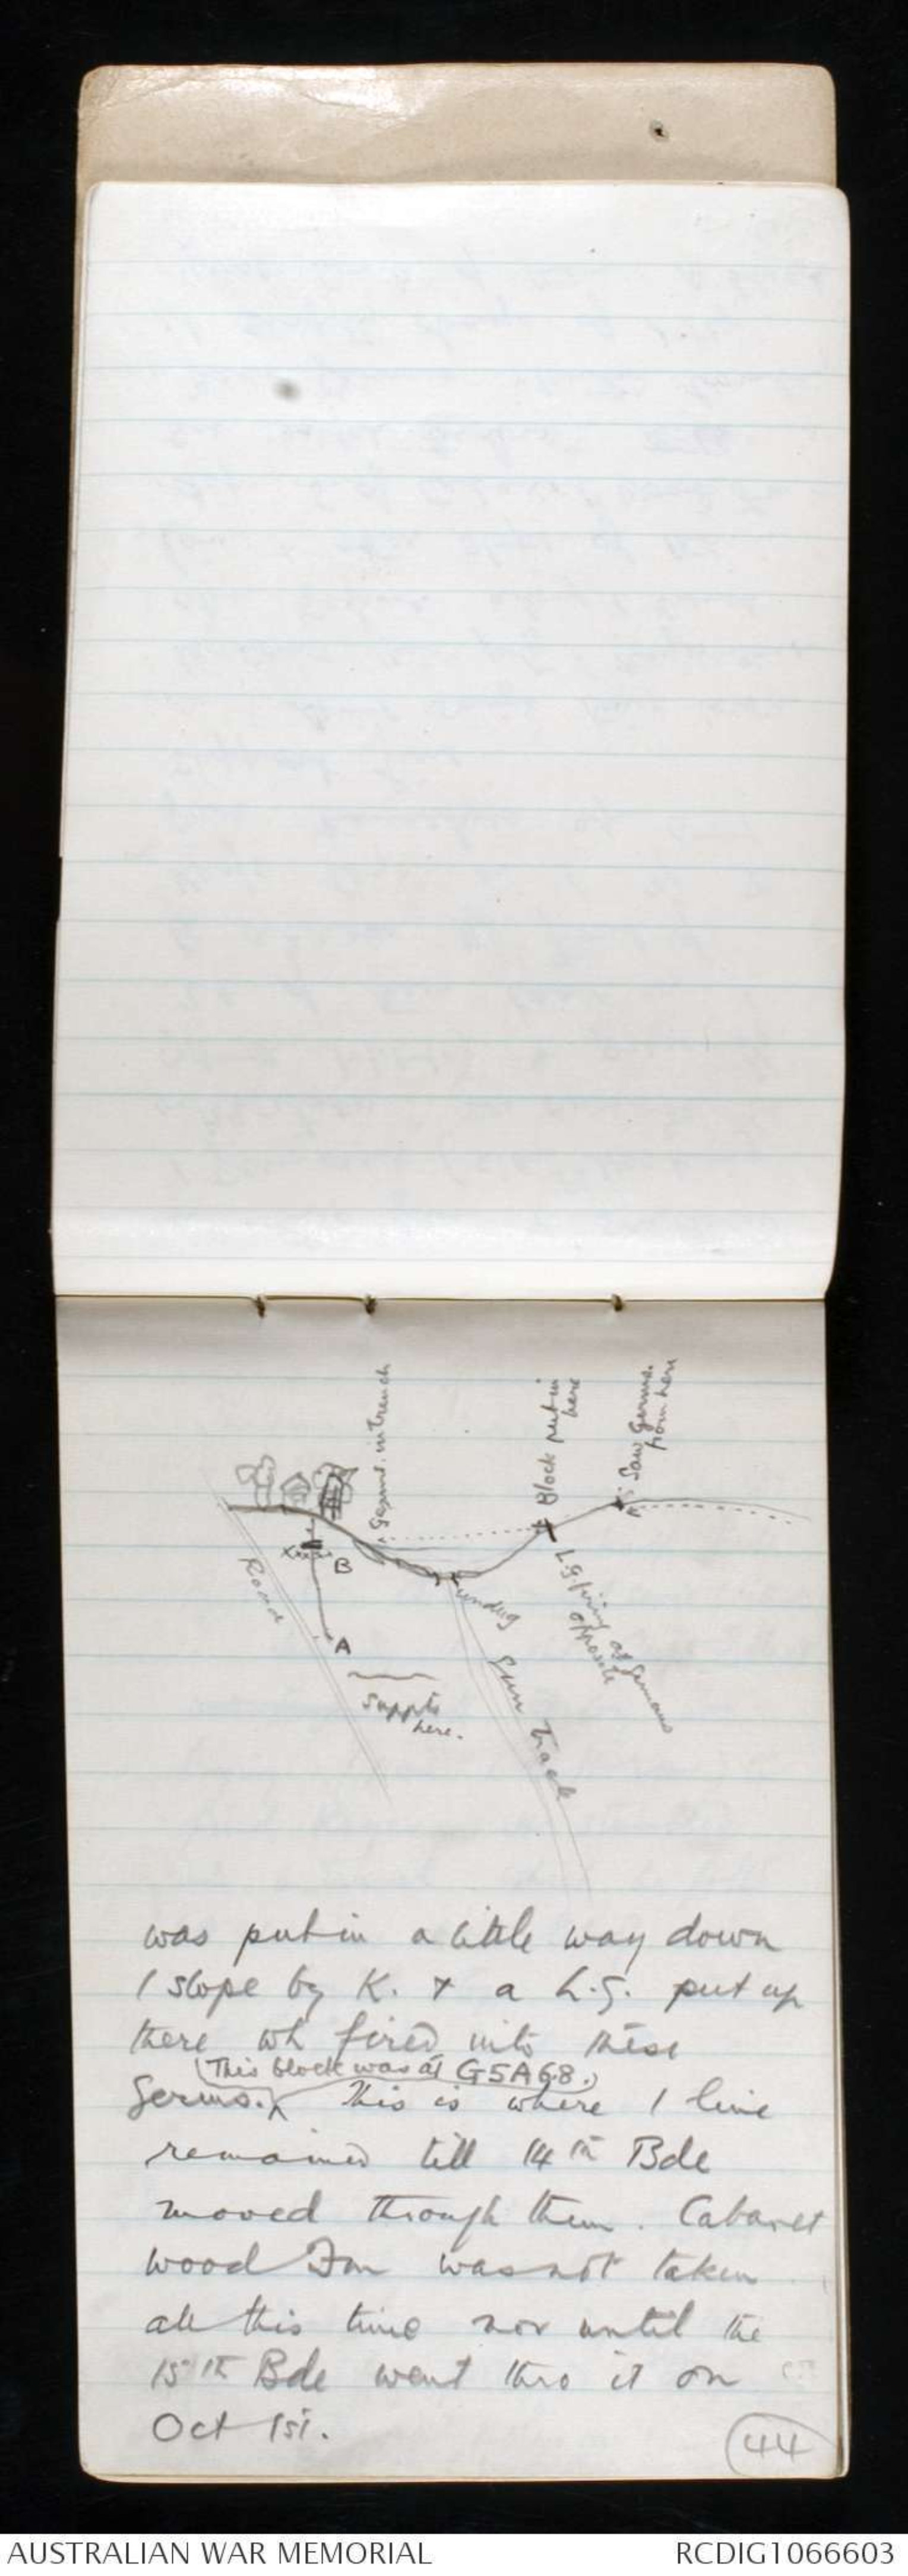 Germs. in trench
Block put in
here
Saw Germs.
from here
Road
B
A
undug
L.G. firing at Germans
opposite
Gun Track
Suppts
here.
was put in a little way down
/ slope by K. & a L.G. put up
there wh fired into these
(This block was at G5A68.)
Germs. This is where / line
remained till 14th Bde
moved through them. Cabaret
wood Fm was not taken
all this time nor until the
15th Bde went thro it on
Oct 1st.
44
AUSTRALIAN WAR MEMORIAL
RCDIG1066603